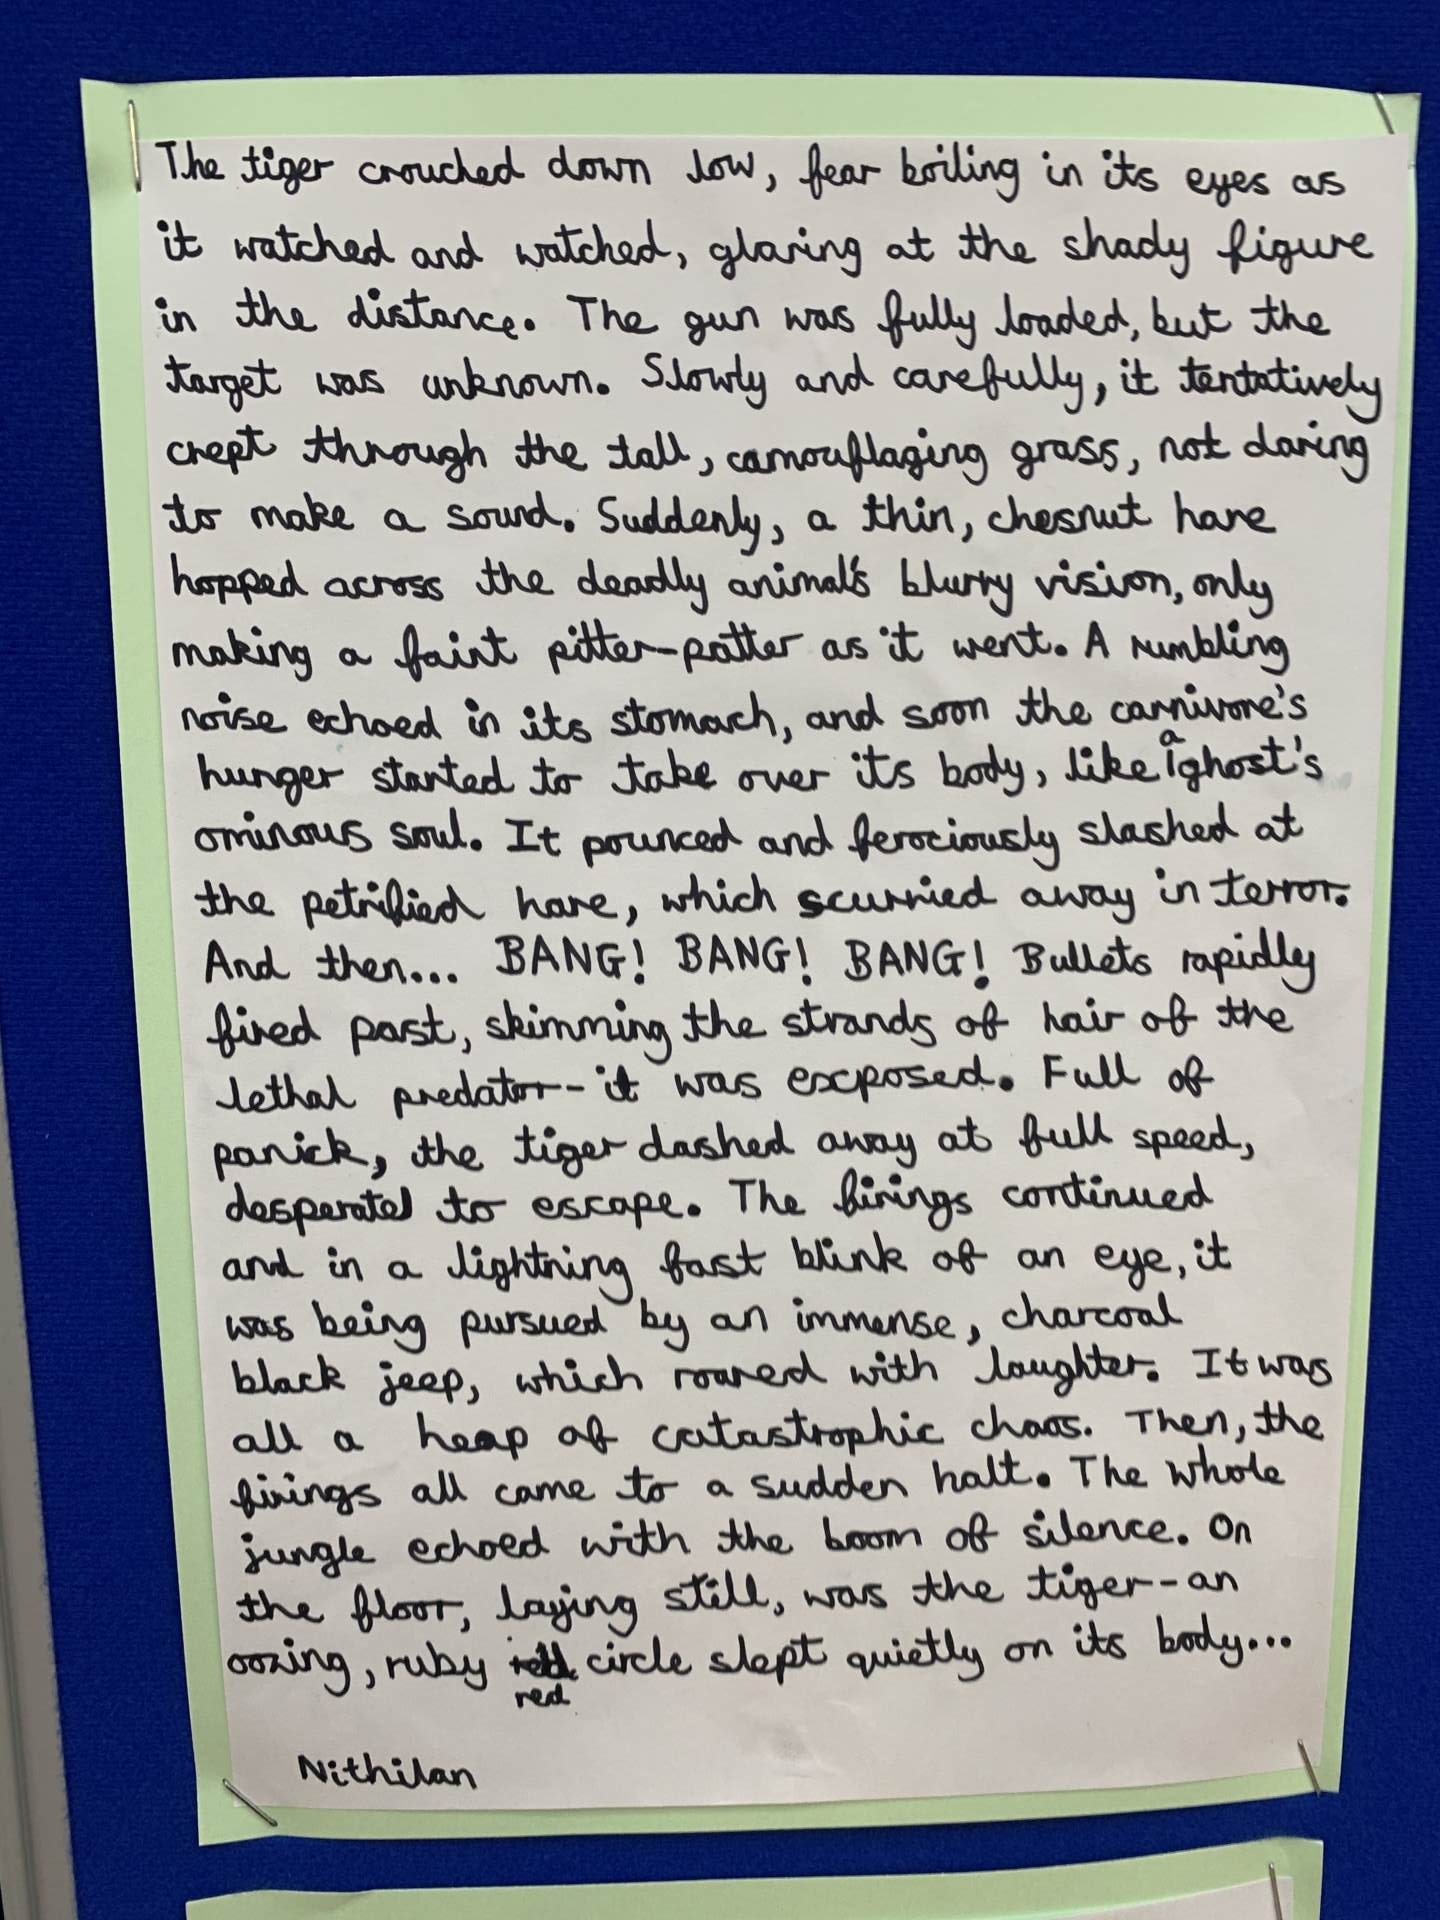 The tiger crouched down low, fear boiling in its eyes as
it watched and watched, glaring at the shady figure
in the distance. The gun was fully loaded, but the
target was unknown. Slowly and carefully, it tentatively
crept through the tall, camouflaging grass, not daring
to make a sound. Suddenly, a thin, chesnut hare
hopped across the deadly animal's blurry vision, only
making a faint pitter-patter as it went. A rumbling
noise echoed in its stomach, and soon the carnivore's
hunger started to take over its body, like a ghost's
ominous soul. It pounced and ferociously slashed at
the petrified hare, which scurried away in terror.
And then... BANG! BANG! BANG! Bullets rapidly
fired past, skimming the strands of hair of the
lethal predator-it was exposed. Full of
panick, the tiger dashed away at full speed,
desperate to escape. The firings continued
and in a lightning fast blink of an eye, it
was being pursued by an immense, charcoal
black jeep, which roared with laughter. It was
all a heap of catastrophic chaos. Then, the
firings all came to a sudden halt. The whole
jungle echoed with the boom of silence. On
the floor, laying still, was the tiger-an
oozing, ruby red circle slept quietly on its body...
Nithilan